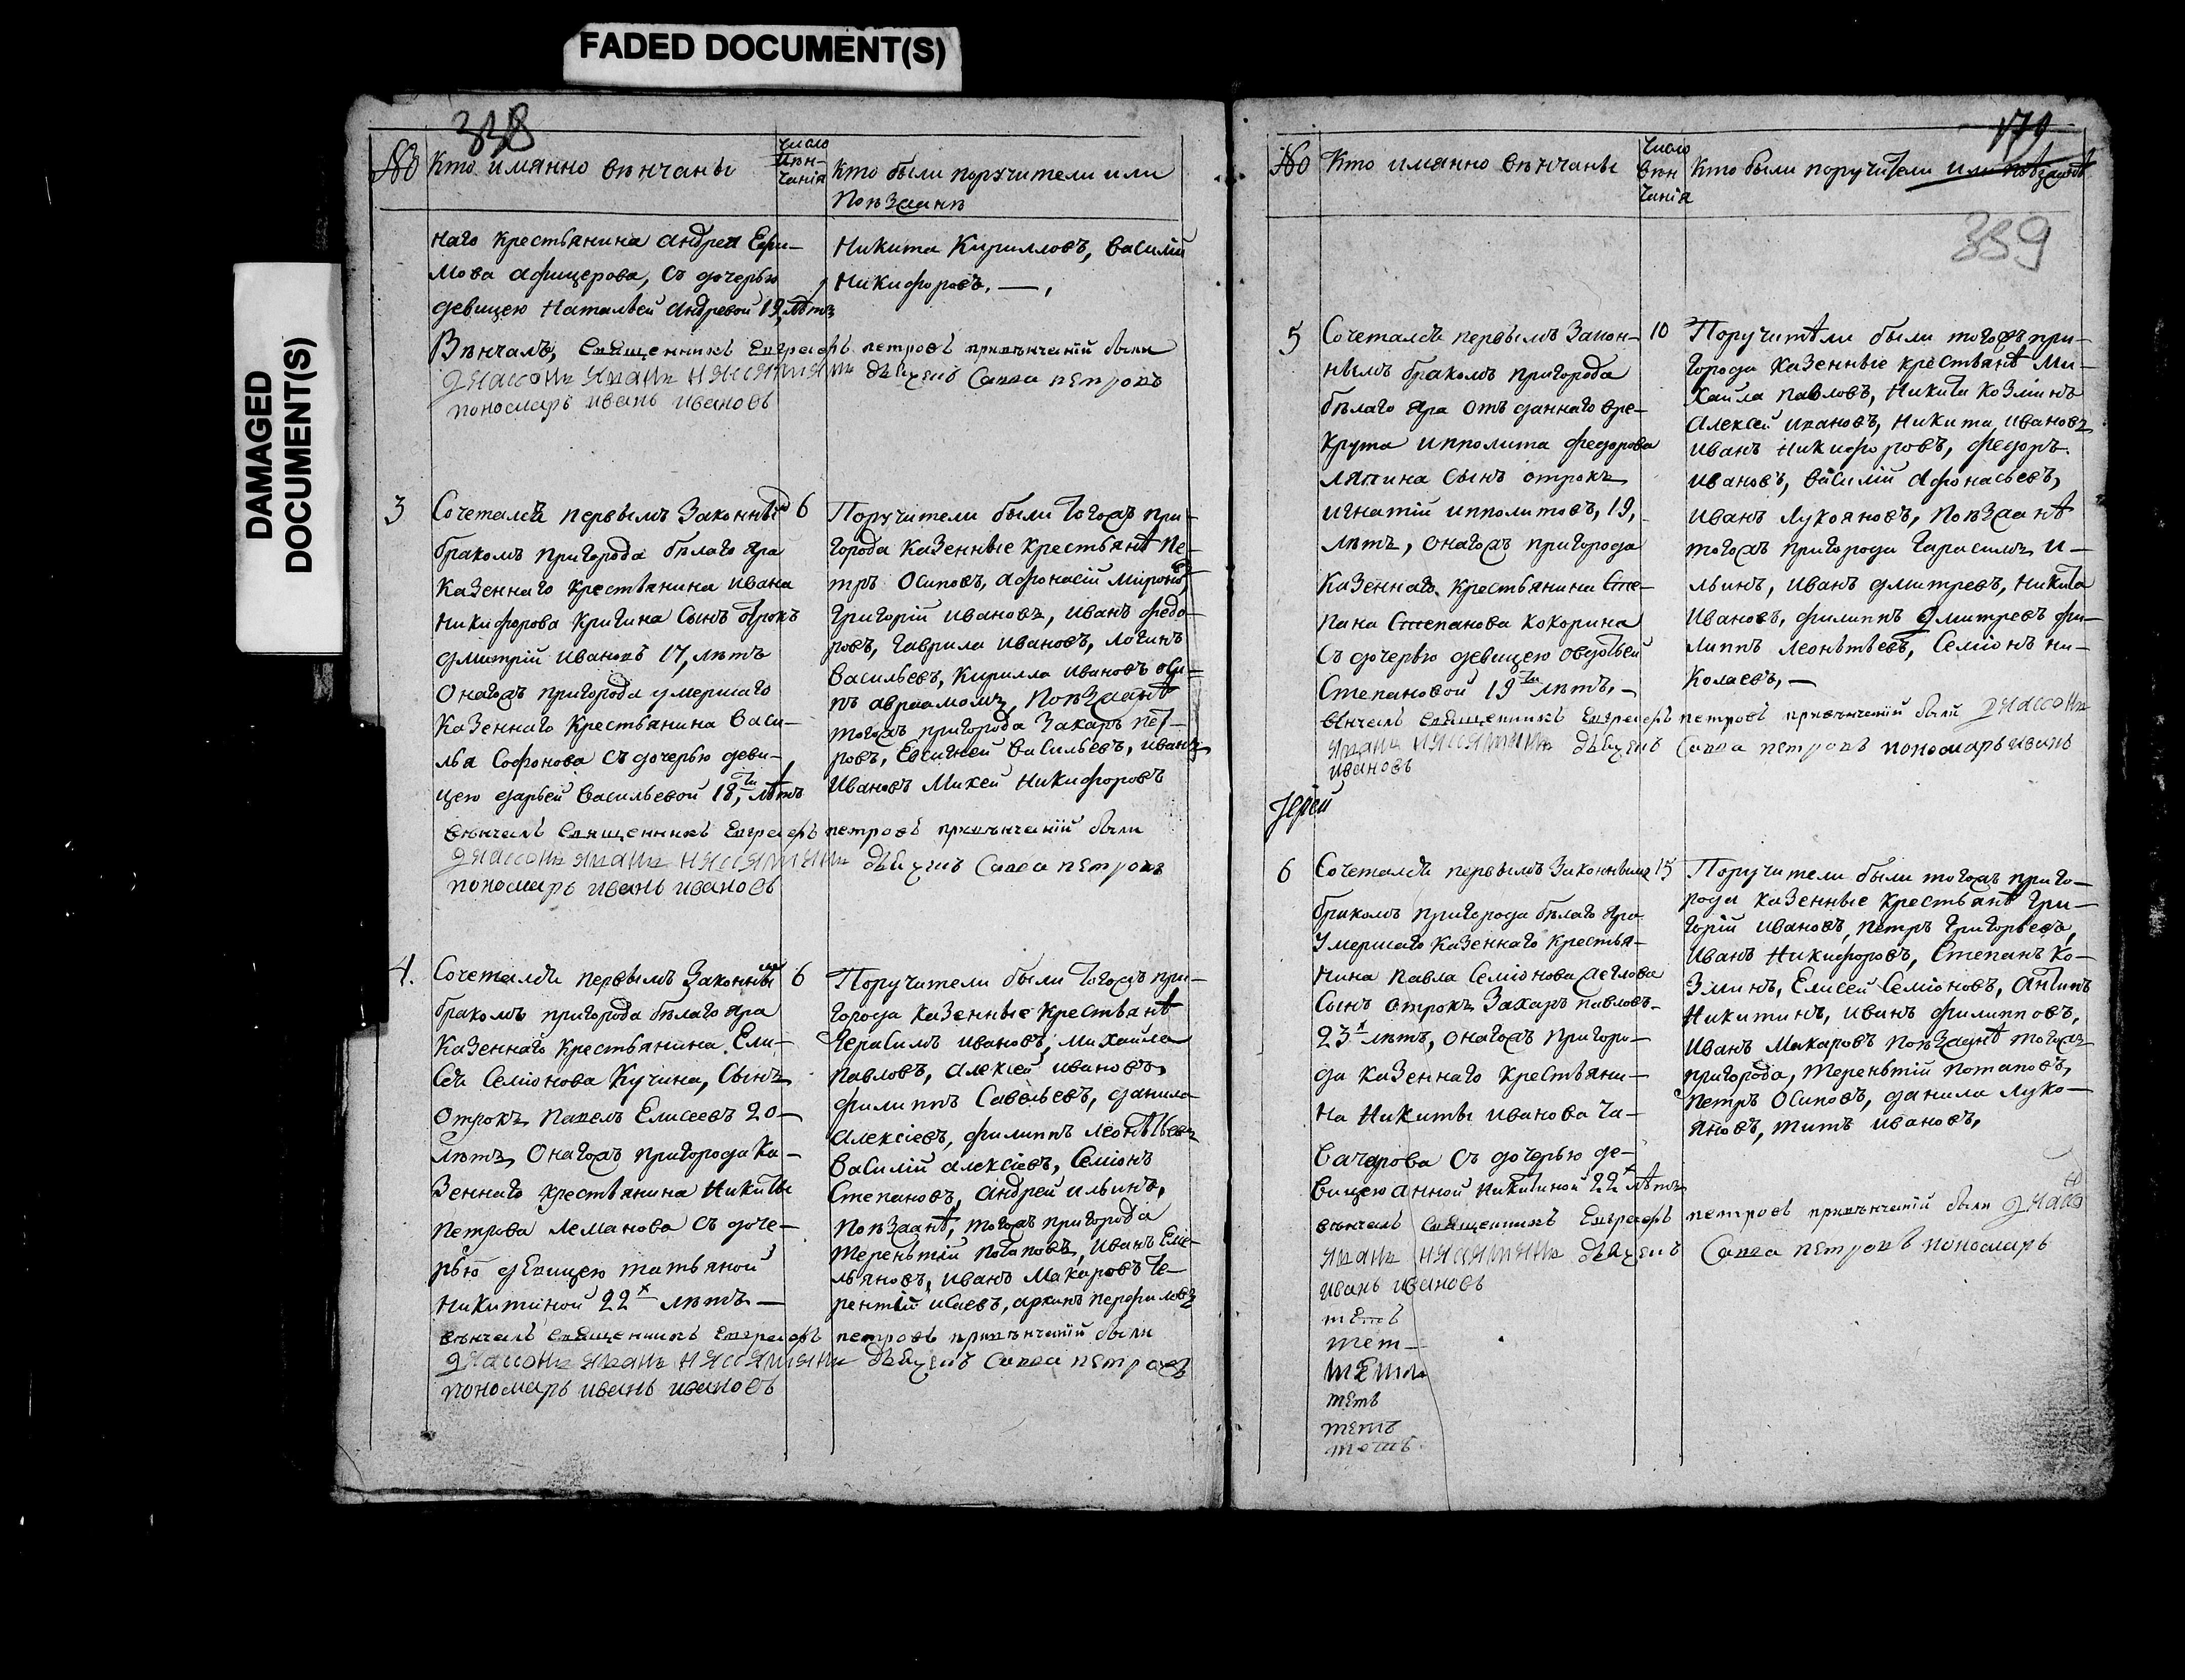 FADED DOCUMENT(S)
DAMAGED
DOCUMENT(S)
338
№ Кто имянно вѣнчаны
число
вѣн-
чанія
Кто были поручители или
Поѣзжанѣ
наго крестьянина андрея Ефи-
мова афицерова, съ дочерью
девицею Натальей андревой 19, лѣтъ
Никита Кирилловъ, василій
Никифоровъ. —
Вѣнчалъ, священникъ Евграфъ петровъ привѣнчаніи были
пономарь иванъ ивановъ
Савва петровъ
3
Сочетался первымъ Законным
бракомъ пригорода бѣлаго яра
казеннаго крестьянина ивана
никифорова кригина сынъ отрокъ
дмитрій ивановъ 17, лѣтъ
онагожъ пригорода умершаго
казеннаго крестьянина васи-
лья Софонова съ дочерью деви-
цею дарьей васильевой 18, ти лѣтъ
6
Поручители были тогожъ при-
города казенные крестьянѣ Пе-
тръ Осиповъ, афонасій мироновъ,
григорій ивановъ, иванъ федо-
ровъ, гаврила ивановъ, логинъ
васильевъ, кирилла ивановъ оси-
пъ авраамомъ, Поѣзжанѣ
тогожъ пригорода Захаръ пет-
ровъ, Евсигней васильевъ, иванъ
ивановъ Михей никифоровъ
вѣнчалъ священникъ Евграфъ петровъ привѣнчаніи были
Савва петровъ
пономарь иванъ ивановъ
4.
Сочетался первымъ Законным
бракомъ пригорода бѣлаго яра
казеннаго крестьянина Ели-
сея Семіонова Кучина, сынъ
отрокъ павелъ Елисеевъ 20-
лѣтъ, онагожъ пригорода ка-
зеннаго крестьянина никиты
петрова леманова съ доче-
рью девицею татьяной
никитиной 22 х лѣтъ —
6
Поручители были тогожъ при-
города казенные крестьянѣ
герасимъ ивановъ, михайла
павловъ, алексѣй ивановъ,
филиппъ Савельевъ, данила
алексіевъ, филиппъ леонтьевъ
василій алексіевъ, Семіонъ
Степановъ, андрей ильинъ,
поѣзжанѣ, тогожъ пригорода
терентій потаповъ, иванъ Еме-
льяновъ, иванъ макаровъ те-
рентій исаевъ, архипъ перфиловъ
вѣнчалъ священникъ Евграфъ петровъ привѣнчаніи были
Савва петровъ
пономарь иванъ ивановъ
179
339
№ Кто имянно вѣнчаны
число
вѣн
чанія
Кто были поручители или поѣзжанѣ
5
Сочетался первымъ Закон-
нымъ бракомъ пригорода
бѣлаго яра отъ даннаго вре-
крута ипполита федорова
ляпина сынъ отрокъ
игнатій ипполитовъ, 19,
лѣтъ, онагожъ пригорода
казеннаго крестьянина Сте-
пана Степанова кокорина
съ дочерью девицею овдотьей
Степановой 19 ти лѣтъ, —
10
Поручители были тогожъ при-
города казенные крестьянѣ Ми-
хаила павловъ, никита козминъ
алексей ивановъ, никита ивановъ
иванъ никифоровъ, федоръ
ивановъ, василій афонасьевъ,
иванъ лукояновъ, поѣзжанѣ
тогожъ пригорода гарасимъ и-
льинъ, иванъ дмитревъ, никита
ивановъ, филиппъ дмитревъ фи-
липпъ леонтьевъ, Семіонъ ни-
колаевъ, —
вѣнчалъ священникъ Евграфъ петровъ привѣнчаніи были
Савва петровъ пономарь иванъ
ивановъ
Іерей
6
Сочетался первымъ Законнымъ
бракомъ пригорода бѣлаго яра
умершаго казеннаго крестья-
нина павла Семіонова
сынъ отрокъ Захаръ павловъ
23 х лѣтъ, онагожъ пригоро-
да казеннаго крестьяни-
на никиты иванова ча-
с дочерью де-
вицею анной никитиной 22 х лѣтъ
15
Поручители были тогожъ приго-
рода казенные крестьянѣ гри-
горій ивановъ, петръ григорьевъ,
иванъ никифоровъ, Степанъ ко-
зминъ, Елисей Семіоновъ, антипъ
никитинъ, иванъ филипповъ,
иванъ макаровъ поѣзжанѣ тогожъ
пригорода, терентій потаповъ,
петръ осиповъ, данила луко-
яновъ, титъ ивановъ,
вѣнчалъ священникъ Евграфъ петровъ привѣнчаніи были
Савва петровъ пономарь
иванъ ивановъ